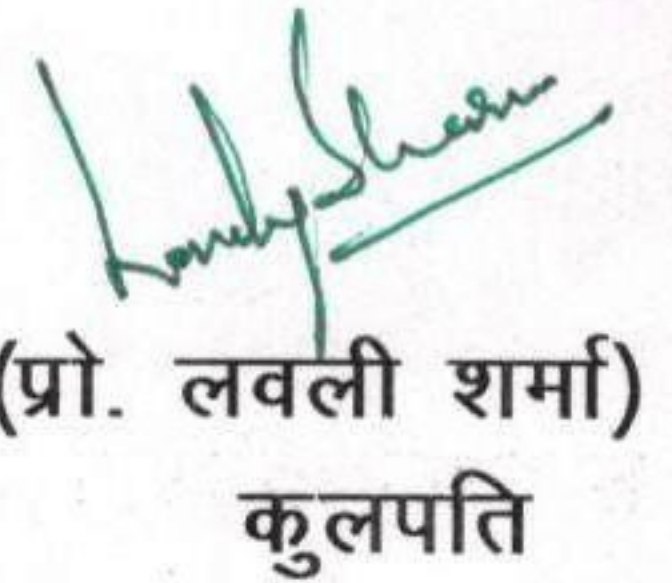 Lovely Sharma
(प्रो. लवली शर्मा)
कुलपति